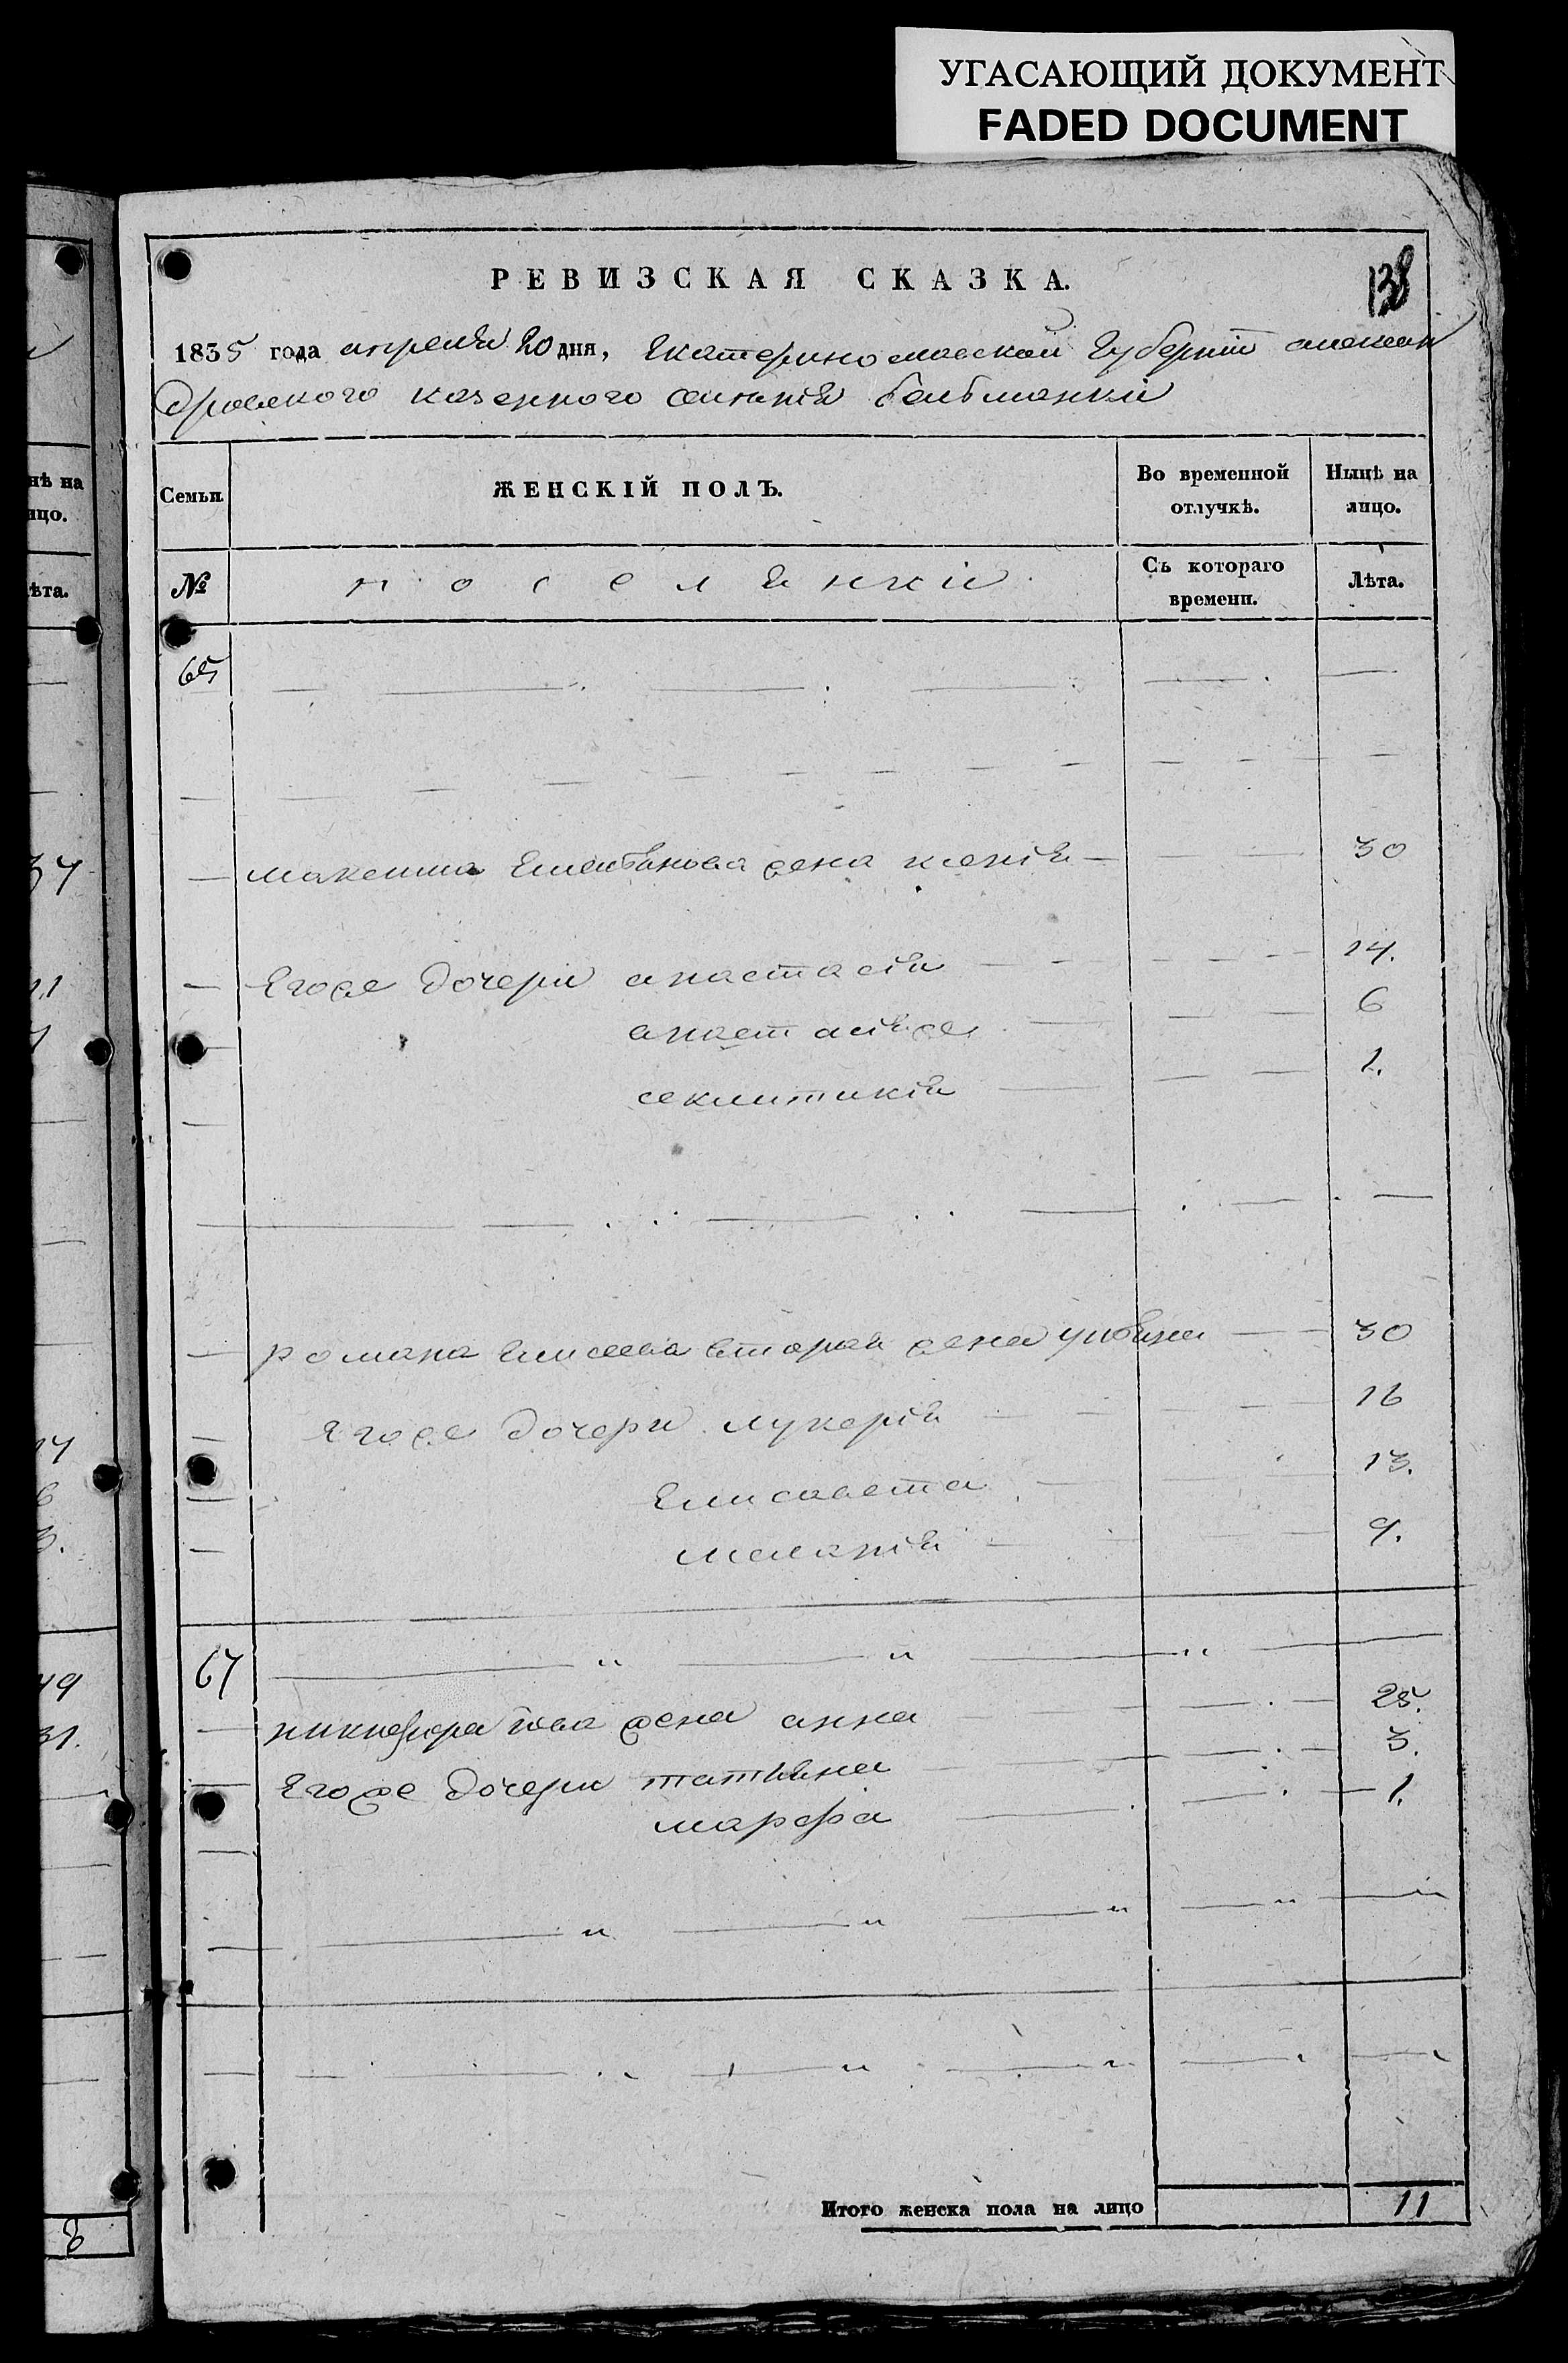 УГАСАЮЩИЙ ДОКУМЕНТ
FADED DOCUMENT
138
РЕВИЗСКАЯ СКАЗКА.
1835 года апреля 20 дня, Екатеринославской Губернiи алексан
дровского казенного селенiя бельманки
Семьи.
ЖЕНСКIЙ ПОЛЪ.
Во временной отлучкѣ.
Нынѣ на лицо.
№
поселянки
Съ котораго времени.
Лѣта.
65
максима Емельянова жена ксенiя 30
Егоже дочери анастасiя 14.
анастасiяже 6
секлитикiя 1.
романа Елисеева вторая жена улияна 30
Егоже дочери лукерiя 16
Елисавета 13.
меланiя 9.
67
никифора iова жена анна 25.
Егоже дочери татьяна 3.
марфа 1.
Итого женска пола на лицо 11
нѣ на
ицо.
ѣта.
34
11
14
6
3.
49
31.
8